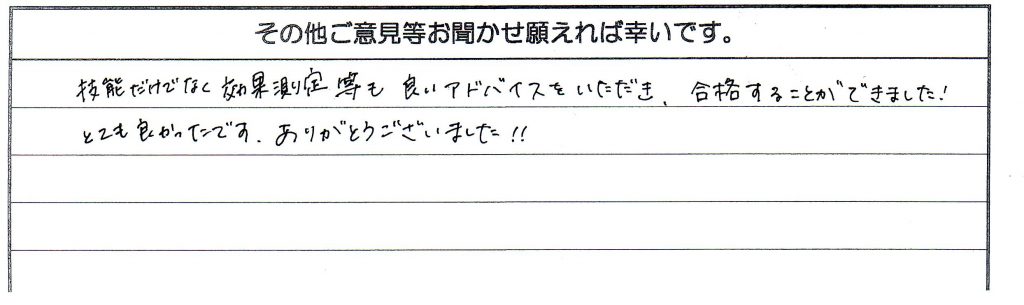 その他ご意見等お聞かせ願えれば幸いです。
技能だけでなく効果測定等も良いアドバイスをいただき、合格することができました!
とても良かったです。ありがとうございました!!